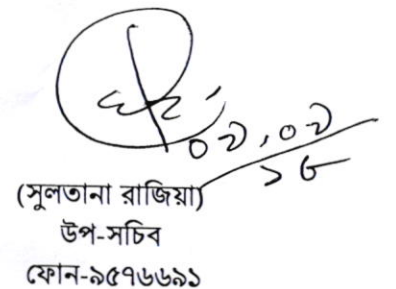 ০২.০২
১৬
(সুলতানা রাজিয়া)
উপ-সচিব
ফোন-৯৫৭৬৬৯১